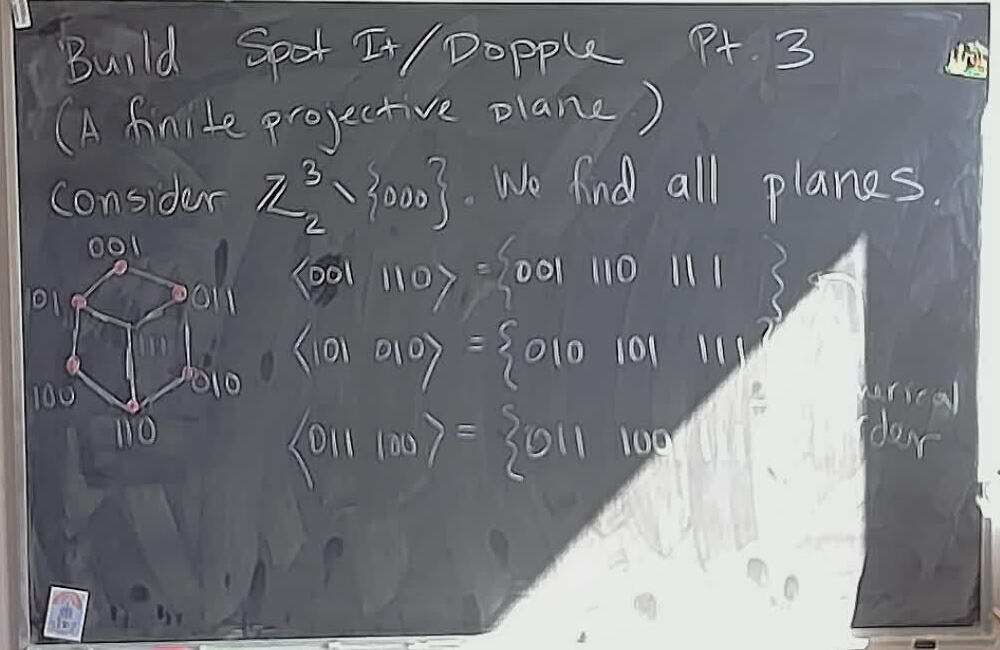 Build Spot It/Dopple Pt. 3
(A finite projective plane.)
Consider ℤ₂³ \ {000}. We find all planes.
001
101
011
111
100
010
110
⟨001 110⟩ = {001 110 111}
⟨101 010⟩ = {010 101 111}
⟨011 100⟩ = {011 100 111